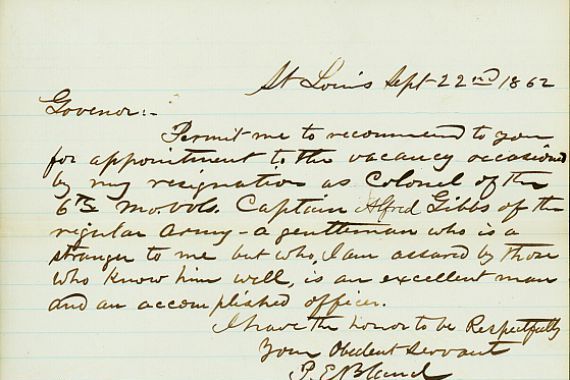 St Louis Sept 22nd 1862
Govenor:-
Permit me to recommend to you
for appointment to the vacancy occasioned
by my resignation as Colonel of the
6th Mo. Vols. Captain Alfred Gibbs of the
regular Army - a gentleman who is a
stranger to me but who, I am assured by those
who know him well, is an excellent man
and an accomplished officer.
I have the honor to be Respectfully
Your Obedient Servant
P. E. Bland